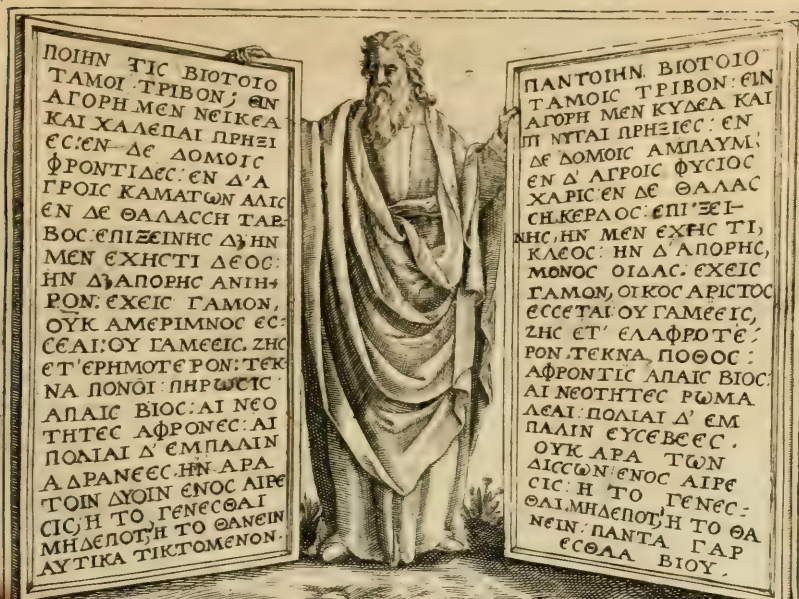 ΠΟΙΗΝ ΤΙϹ ΒΙΟΤΟΙΟ
ΤΑΜΟΙ ΤΡΙΒΟΝ; ЄΙΝ
ΑΓΟΡΗ ΜΕΝ ΝΕΙΚΕΑ
ΚΑΙ ΧΑΛΕΠΑΙ ΠΡΗΞΙ
ЄϹ: ЄΝ ΔΕ ΔΟΜΟΙϹ
ΦΡΟΝΤΙΔЄϹ: ЄΝ Δ'Α
ΓΡΟΙϹ ΚΑΜΑΤΩΝ ΑΛΙϹ
ЄΝ ΔЄ ΘΑΛΑϹϹΗ ΤΑΡ-
ΒΟϹ: ЄΠΙΞЄΙΝΗϹ Δ' ΗΝ
ΜЄΝ ЄΧΗϹ ΤΙ ΔЄΟϹ:
ΗΝ Δ' ΑΠΟΡΗϹ ΑΝΙΗ-
ΡΟΝ: ЄΧЄΙϹ ΓΑΜΟΝ,
ΟΥΚ ΑΜЄΡΙΜΝΟϹ ЄϹ-
ϹЄΑΙ: ΟΥ ΓΑΜЄЄΙϹ. ΖΗϹ
ЄΤ' ЄΡΗΜΟΤЄΡΟΝ: ΤЄΚ-
ΝΑ ΠΟΝΟΙ: ΠΗΡΩϹΙϹ
ΑΠΑΙϹ ΒΙΟϹ: ΑΙ ΝЄΟ
ΤΗΤЄϹ ΑΦΡΟΝЄϹ: ΑΙ
ΠΟΛΙΑΙ Δ' ЄΜΠΑΛΙΝ
ΑΔΡΑΝЄЄϹ. ΗΝ ΑΡΑ
ΤΟΙΝ ΔΥΟΙΝ ЄΝΟϹ ΑΙΡЄ
ϹΙϹ; Η ΤΟ ΓЄΝЄϹΘΑΙ
ΜΗΔЄΠΟΤ, Η ΤΟ ΘΑΝЄΙΝ
ΑΥΤΙΚΑ ΤΙΚΤΟΜЄΝΟΝ.
ΠΑΝΤΟΙΗΝ. ΒΙΟΤΟΙΟ
ΤΑΜΟΙϹ ΤΡΙΒΟΝ: ЄΙΝ
ΑΓΟΡΗ ΜЄΝ ΚΥΔЄΑ ΚΑΙ
ΠΙΝΥΤΑΙ ΠΡΗΞΙЄϹ: ЄΝ
ΔЄ ΔΟΜΟΙϹ ΑΜΠΑΥΜ:
ЄΝ Δ' ΑΓΡΟΙϹ ΦΥϹΙΟϹ
ΧΑΡΙϹ: ЄΝ ΔЄ ΘΑΛΑϹ
ϹΗ. ΚЄΡΔΟϹ: ЄΠΙ ΞЄΙ-
ΝΗϹ, ΗΝ ΜЄΝ ЄΧΗϹ ΤΙ,
ΚΛЄΟϹ: ΗΝ Δ' ΑΠΟΡΗϹ,
ΜΟΝΟϹ ΟΙΔΑϹ. ЄΧЄΙϹ
ΓΑΜΟΝ, ΟΙΚΟϹ ΑΡΙϹΤΟϹ
ЄϹϹЄΤΑΙ: ΟΥ ΓΑΜЄЄΙϹ,
ΖΗϹ ЄΤ' ЄΛΑΦΡΟΤЄ:
ΡΟΝ. ΤЄΚΝΑ ΠΟΘΟϹ:
ΑΦΡΟΝΤΙϹ ΑΠΑΙϹ ΒΙΟϹ:
ΑΙ ΝЄΟΤΗΤЄϹ ΡΩΜΑ
ΛЄΑΙ: ΠΟΛΙΑΙ Δ' ЄΜ
ΠΑΛΙΝ ЄΥϹЄΒЄЄϹ.
ΟΥΚ ΑΡΑ ΤΩΝ
ΔΙϹϹΩΝ ЄΝΟϹ ΑΙΡЄ
ϹΙϹ: Η ΤΟ ΓЄΝЄϹ-
ΘΑΙ. ΜΗΔЄΠΟΤ, Η ΤΟ ΘΑ
ΝЄΙΝ: ΠΑΝΤΑ ΓΑΡ
ЄϹΘΛΑ ΒΙΟΥ.